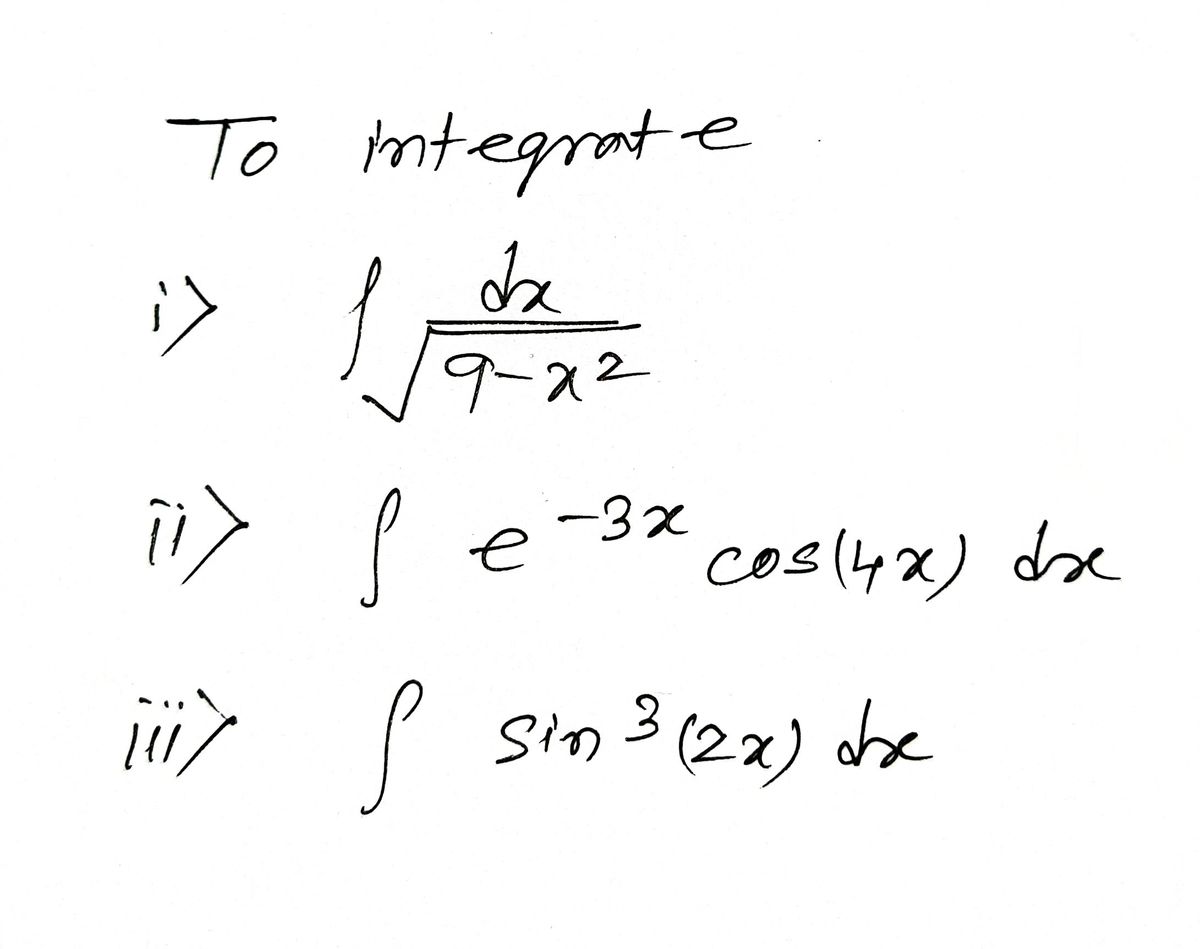 To integrate
i> ∫ dx / √(9-x²)
ii> ∫ e^(-3x) cos(4x) dx
iii> ∫ sin³(2x) dx